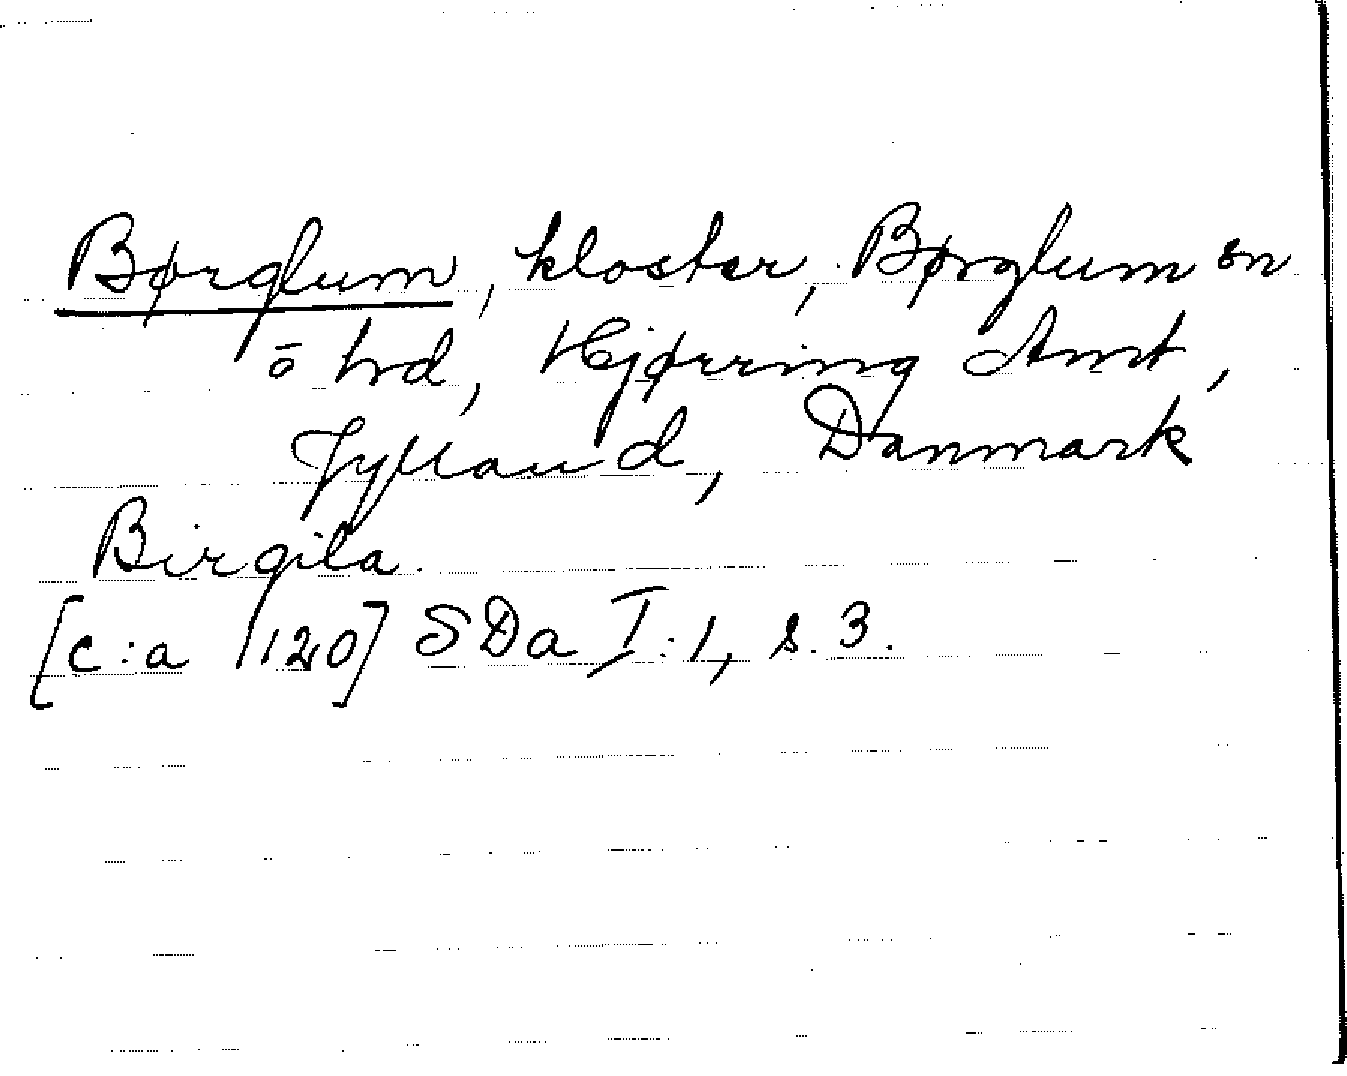 Børglum, kloster, Børglum sn
o hd, Hjørring Amt,
Jylland, Danmark
Birgila.
[c:a 1120] SDa I:1, s. 3.